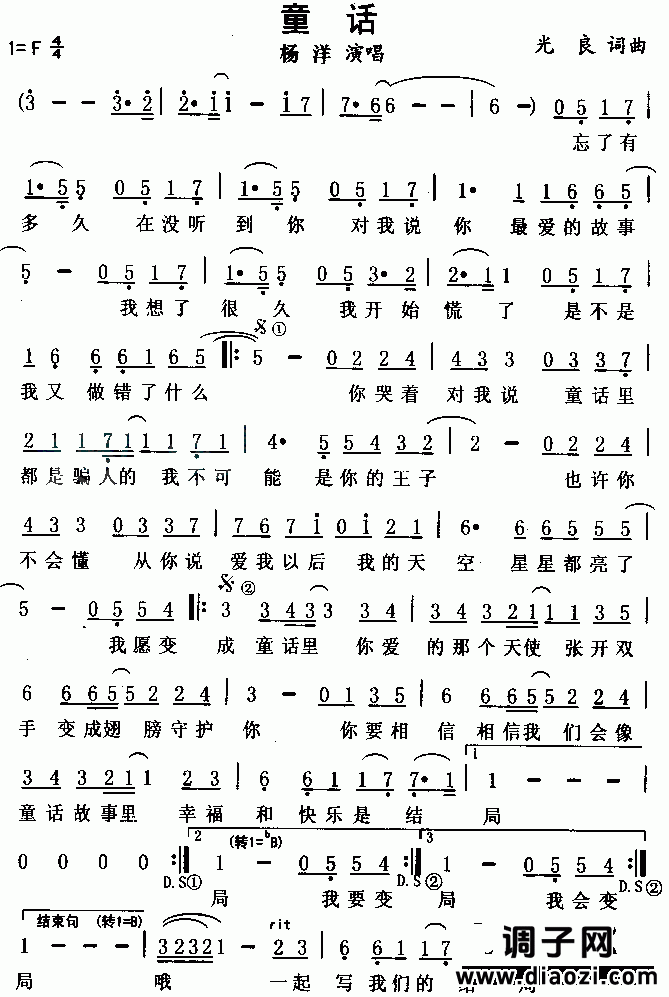 童 话
1=F 4/4
杨 洋 演唱
光 良 词曲
(3 - - 3·2 | 2·1 1 - 1 7 | 7·6 6 - - | 6 - ) 0 5 1 7 |
忘了有
1·5 5 0 5 1 7 | 1·5 5 0 5 1 7 | 1· 1 1 6 6 5 |
多 久 在没听 到 你 对我说 你 最爱的故事
5 - 0 5 1 7 | 1·5 5 0 5 3·2 | 2·1 1 0 5 1 7 |
我想了 很 久 我开始慌了 是不是
𝄋①
1 6 6 6 1 6 5 |: 5 - 0 2 2 4 | 4 3 3 0 3 3 7 |
我又 做错了什么 你哭着 对我说 童话里
2 1 1 7 1 1 1 7 1 | 4· 5 5 4 3 2 | 2 - 0 2 2 4 |
都是骗人的 我不可 能 是你的王子 也许你
4 3 3 0 3 3 7 | 7 6 7 1 0 1 2 1 | 6· 5 5 5 4 5 |
不会懂 从你说 爱我以后 我的天 空 星星都亮了
𝄋②
5 - 0 5 5 4 |: 3 3 4 3 3 3 3 4 | 3 4 3 2 1 1 1 3 5 |
我愿变 成 童话里 你爱 的那个天使 张开双
6 6 6 5 5 2 2 4 | 3 - 0 1 3 5 | 6 6 6 5 5 2 2 4 |
手 变成翅 膀守护 你 你要相 信 相信我 们会像
1
3 4 3 2 1 1 2 2 3 | 6 6 1 1 7 7·1 | 1 - - - |
童话故事里 幸福 和 快乐是 结 局
2 (转1=ᵇB) 3
0 0 0 0 :| 1 - 0 5 5 4 :| 1 - 0 5 5 4 :|
D.S① D.S② D.S②
局 我要变 局 我会变
结束句 (转1=B) rit
1 - 3 2 3 2 1 - 2 3 | 6 6 1 1 7
局 哦 一起 写我们的 结 局
调子网
www.diaozi.com